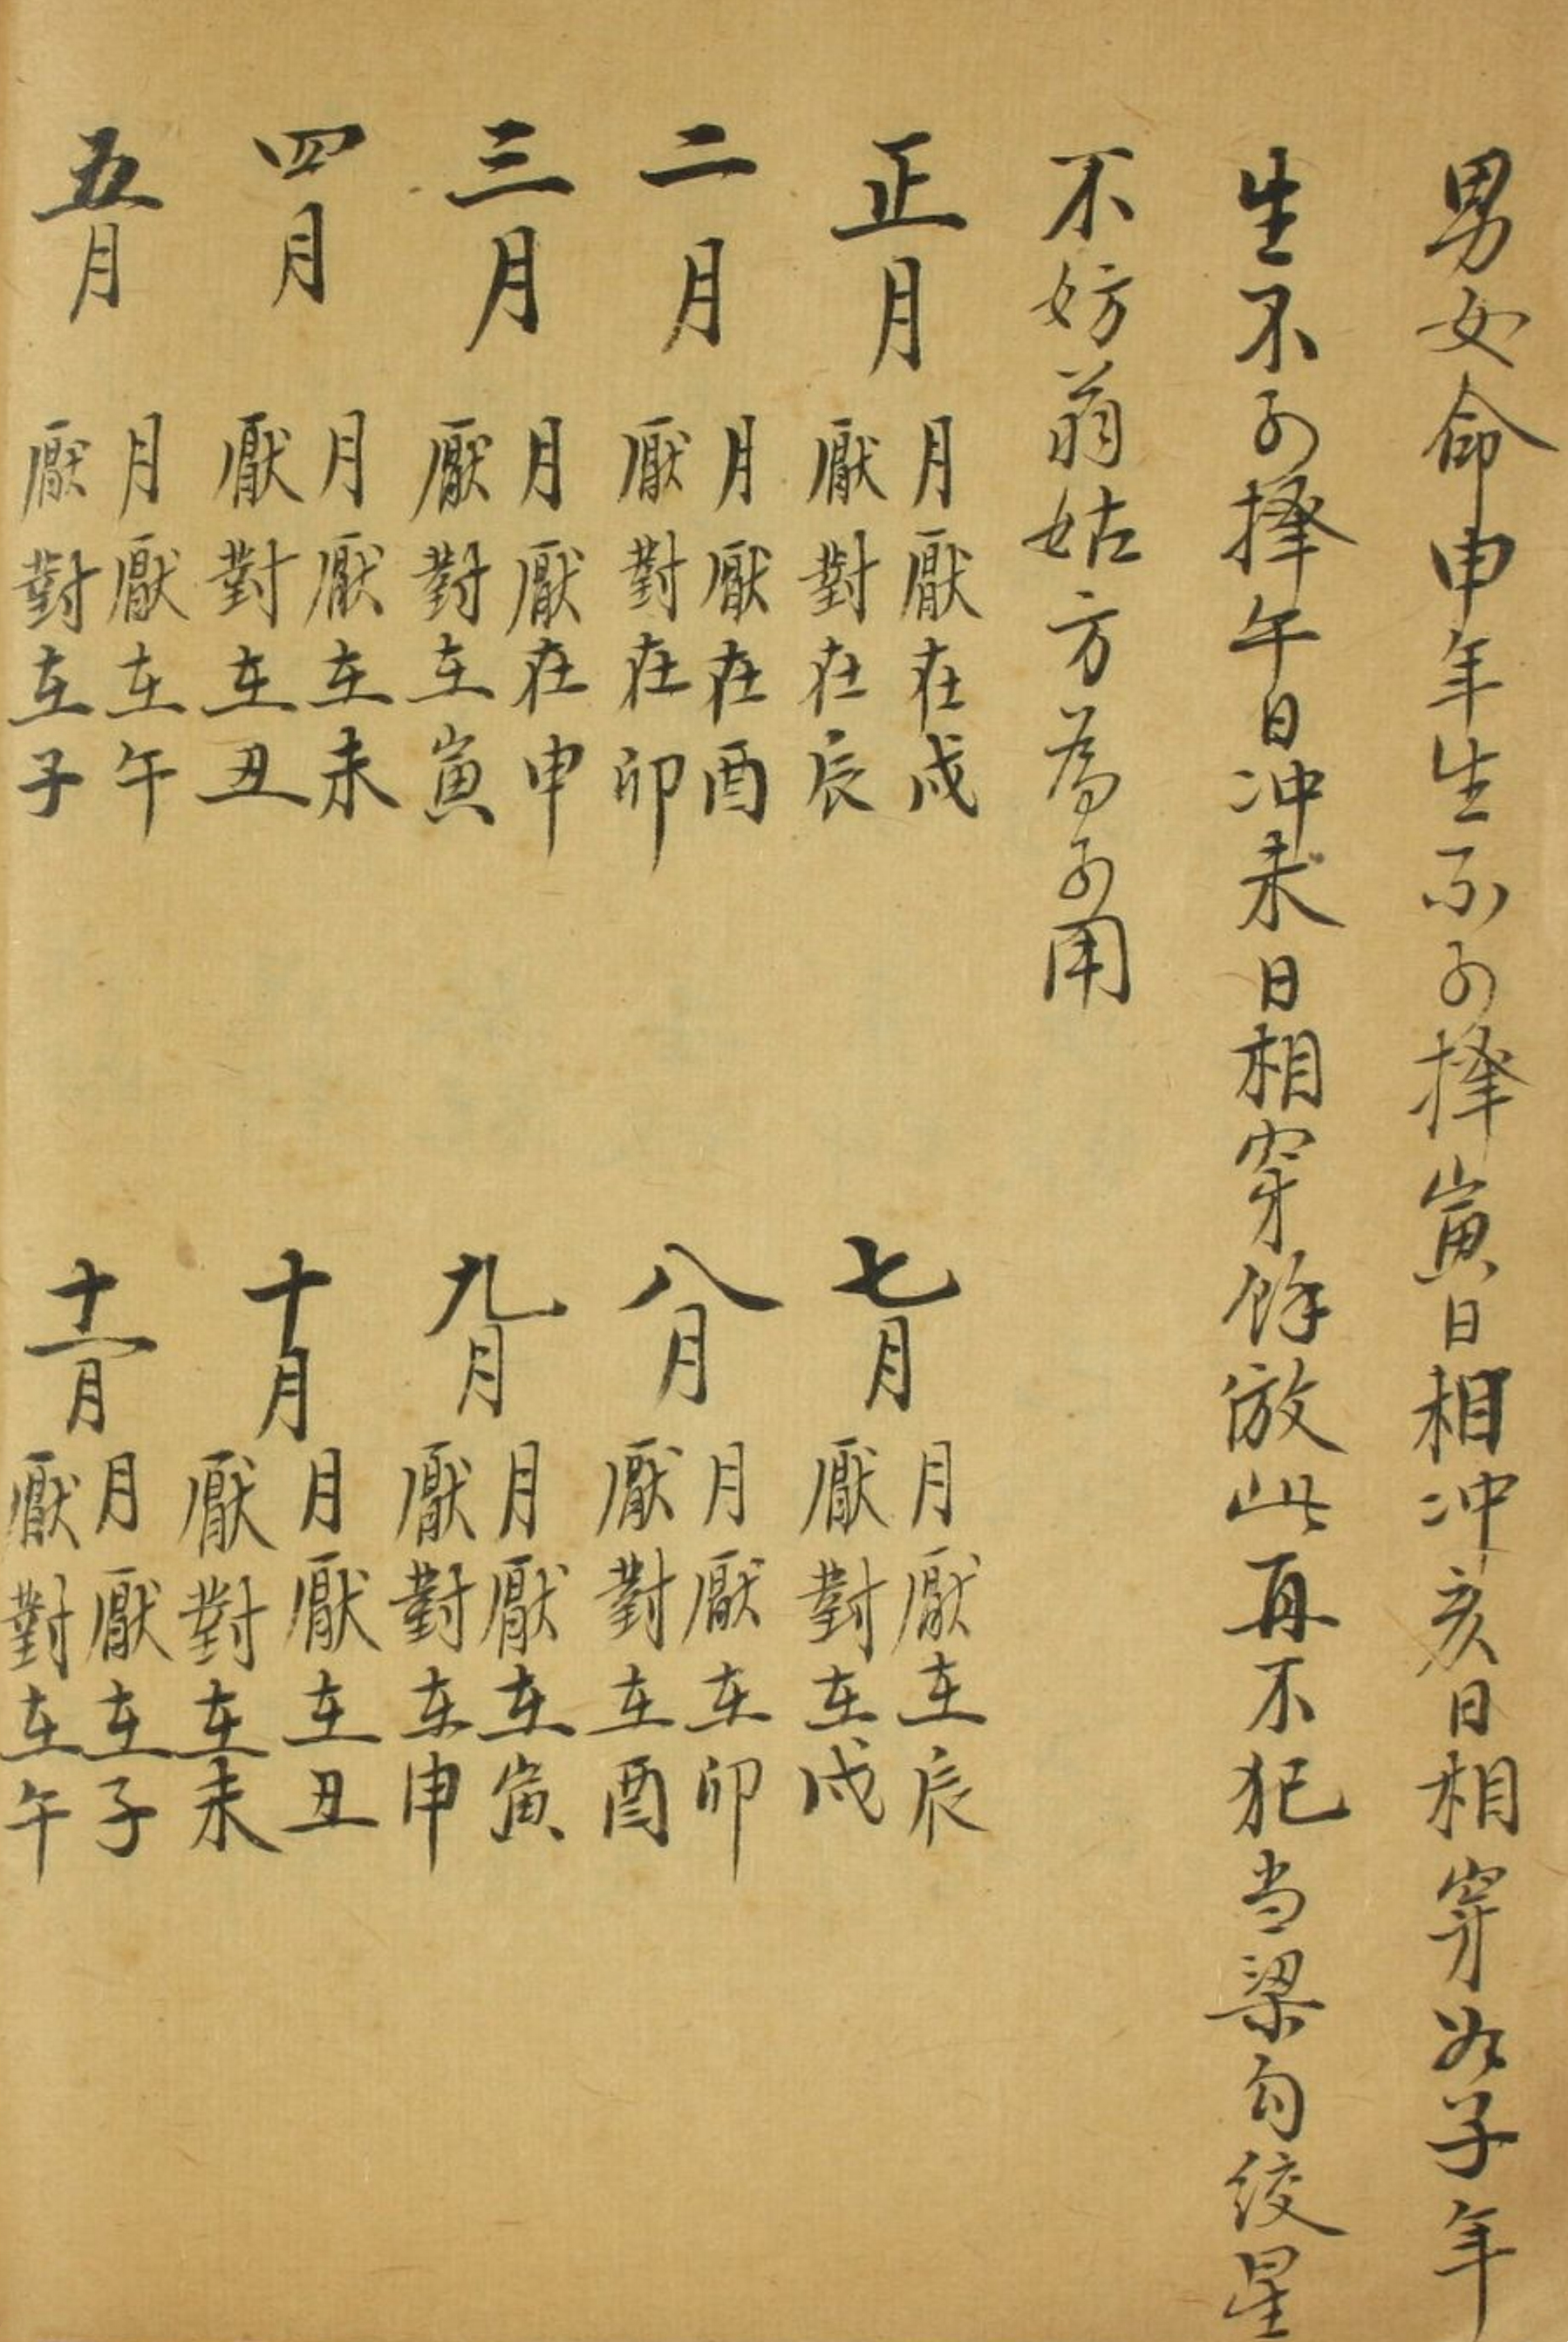 男女命申年生不可择寅日相冲亥日相穿如子年
生不可择午日冲未日相穿餘倣此再不犯当梁勾绞星
不妨翁姑方為可用
正月
月厭在戌
厭對在辰
二月
月厭在酉
厭對在卯
三月
月厭在申
厭對在寅
四月
月厭在未
厭對在丑
五月
月厭在午
厭對在子
七月
月厭在辰
厭對在戌
八月
月厭在卯
厭對在酉
九月
月厭在寅
厭對在申
十月
月厭在丑
厭對在未
十一月
月厭在子
厭對在午